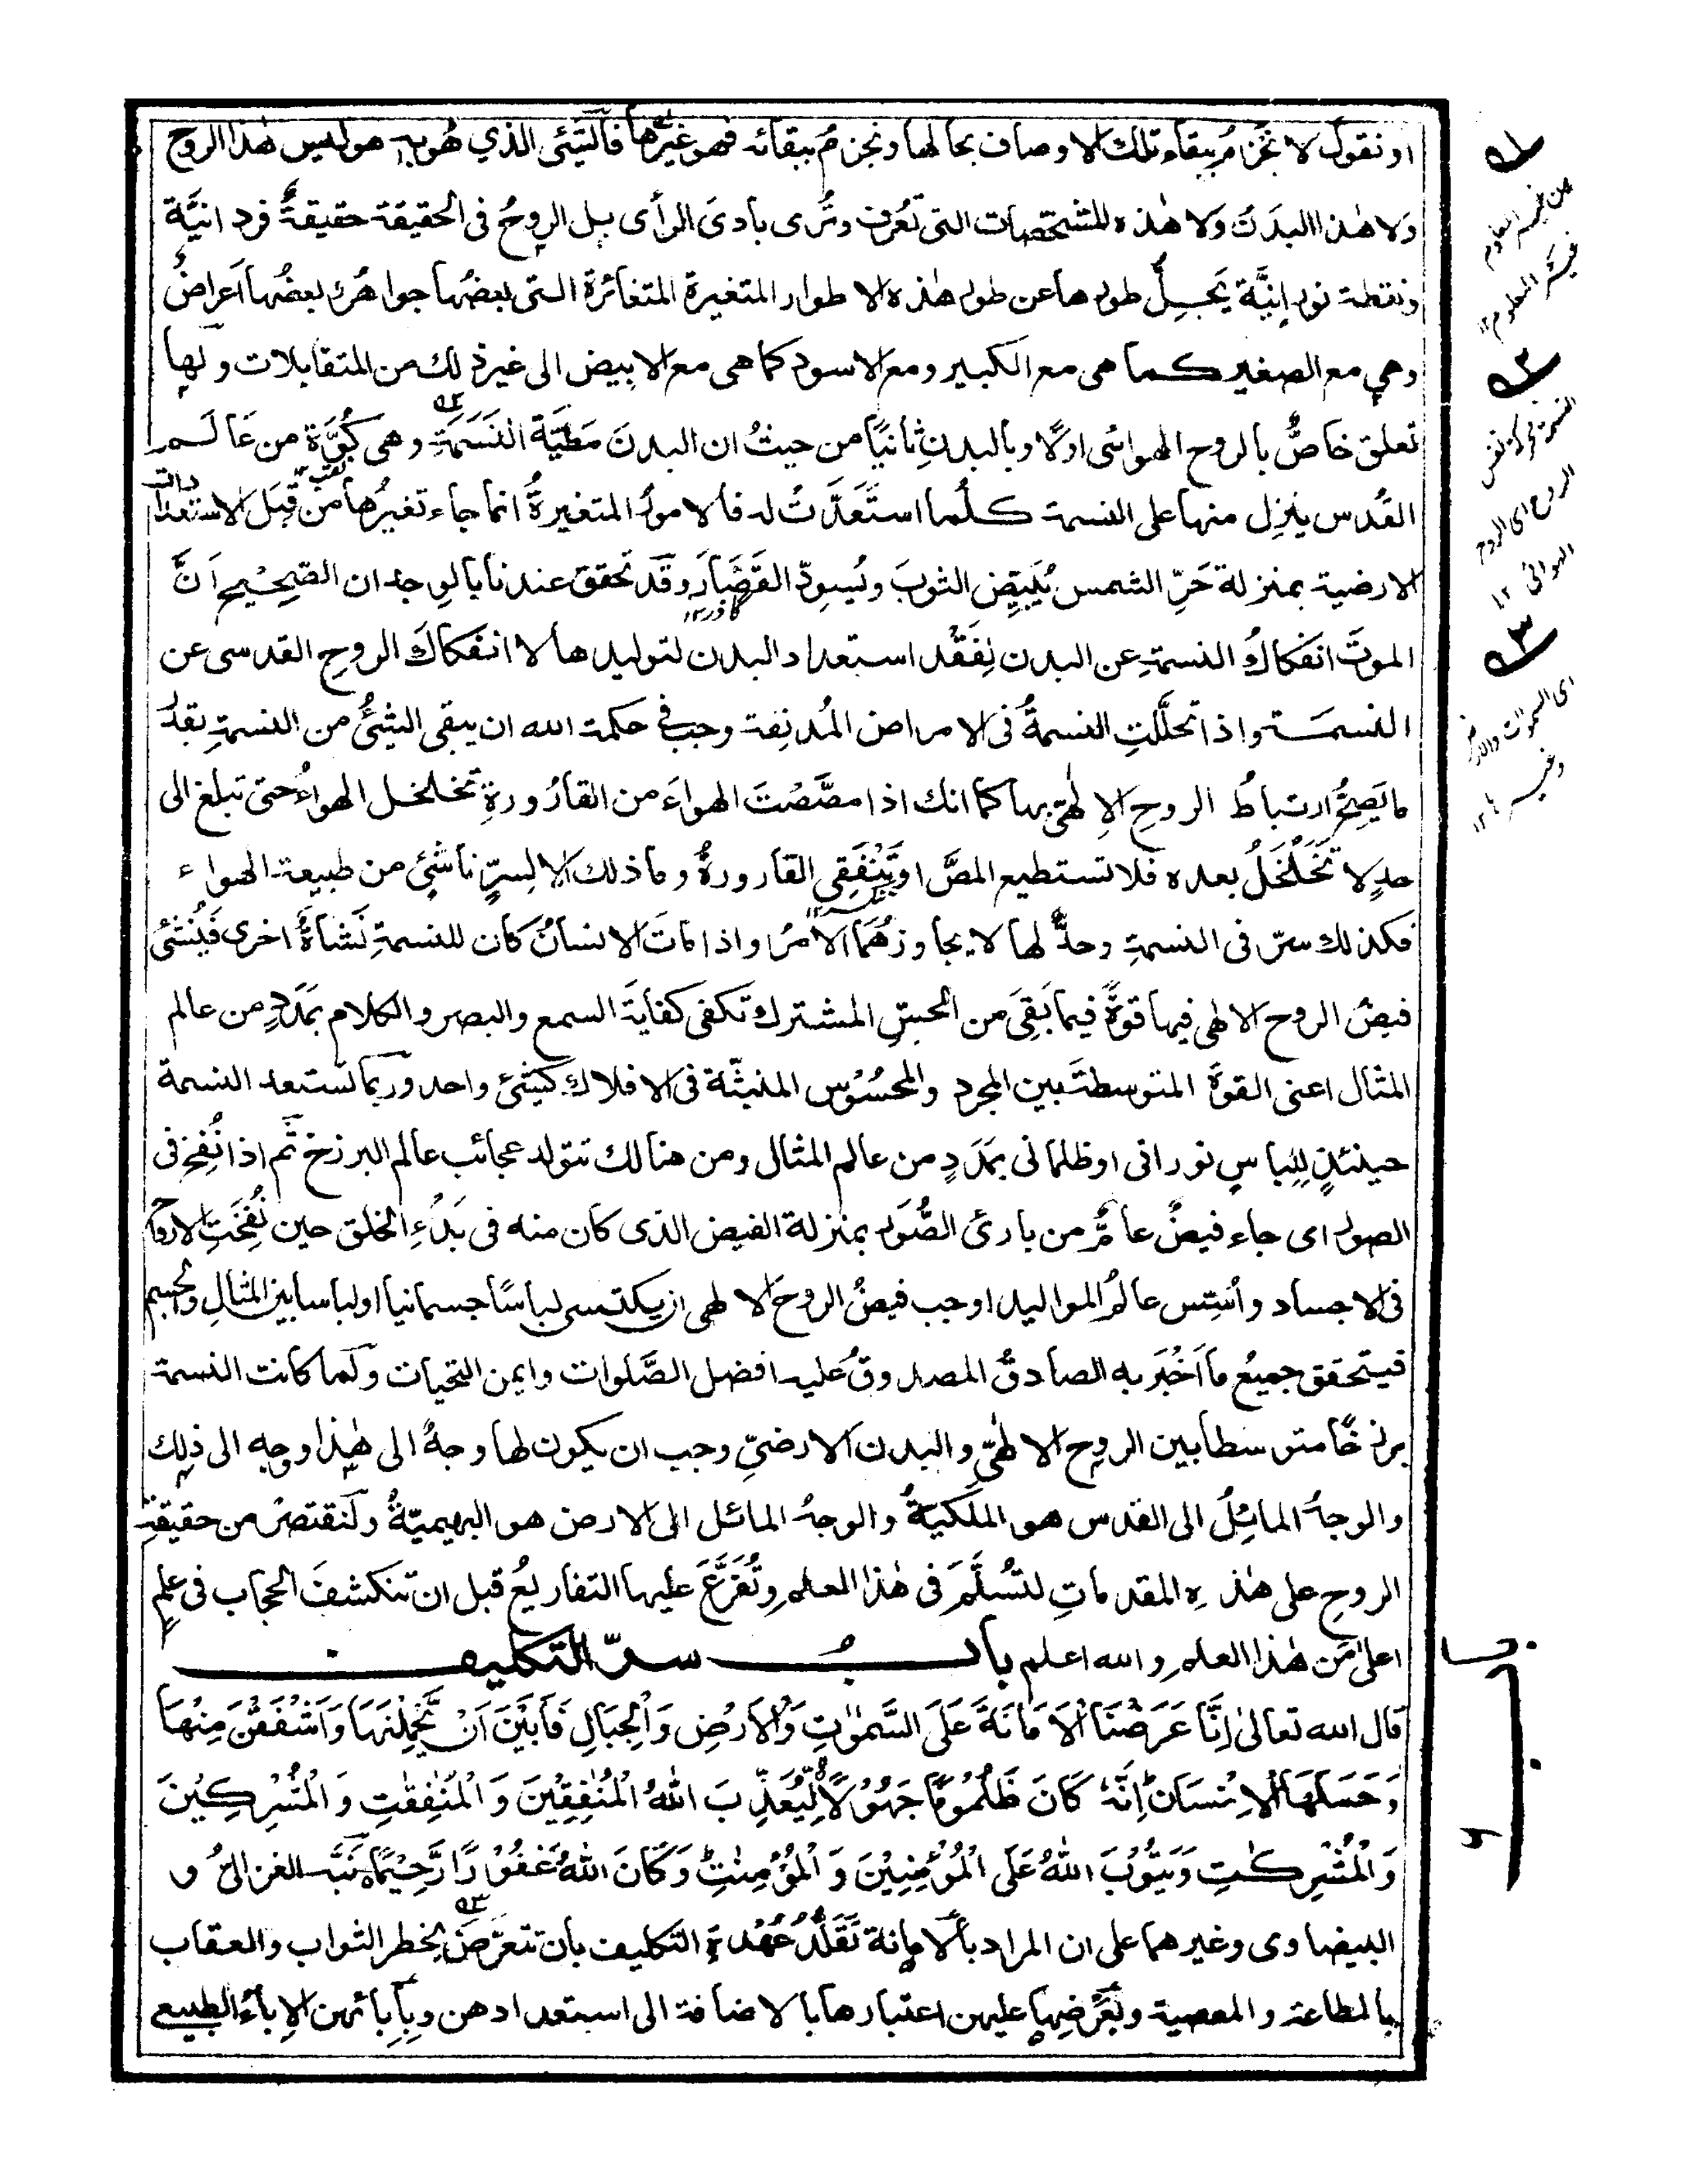 او نقول لا نجزم ببقاء تلك الاوصاف بحالها ونجزم ببقائه فهو غيرها فالشئ الذي هو به هو ليس هذا الروح
ولا هذا البدن ولا هذه المشخصات التى تعرف وترى بادى الرأى بل الروح فى الحقيقة حقيقة فردانية
ونقطة نورانية يجل طورها عن طور هذه الاطوار المتغيرة المتغائرة التى بعضها جواهر وبعضها اعراض
وهى مع الصغير كما هى مع الكبير ومع الاسود كما هى مع الابيض الى غير ذلك من المتقابلات ولها
تعلق خاص بالروح الهوائى اولا وبالبدن ثانيا من حيث ان البدن مطية النسمة وهى كوة من عالم
القدس ينزل منها على النسمة كلما استعدت له فالامور المتغيرة انما جاء تغيرها من قبل الاستعدادات
الارضية بمنزلة حر الشمس يبيض الثوب ويسود القصار وقد تحقق عندنا بالوجدان الصحيح ان
الموت انفكاك النسمة عن البدن لفقد استعداد البدن لتوليدها لا انفكاك الروح القدسى عن
النسمة واذا تحللت النسمة فى الامراض المدنفة وجب فى حكمة الله ان يبقى الشئ من النسمة بقدر
ما يصح ارتباط الروح الالهى بها كما انك اذا مصصت الهواء من القارورة تخلخل الهواء حتى تبلغ الى
حد لا تخلخل بعده فلا تستطيع المص او تنفقئ القارورة وما ذلك الا لسر ناشئ من طبيعة الهواء
فكذلك سر فى النسمة وحد لها لا يجاوزهما الامر واذا مات الانسان كان للنسمة نشأة اخرى فينشئ
فيض الروح الالهى فيها قوة فيما بقى من الحس المشترك تكفى كفاية السمع والبصر والكلام بمدد من عالم
المثال اعنى القوة المتوسطة بين المجرد والمحسوس المنبثة فى الافلاك كشئ واحد وربما تستعد النسمة
حينئذ للباس نورانى او ظلمانى بمدد من عالم المثال ومن هنالك تتولد عجائب عالم البرزخ ثم اذا نفخ فى
الصور اى جاء فيض عام من بارئ الصور بمنزلة الفيض الذى كان منه فى بدء الخلق حين نفخت الارواح
فى الاجساد واسس عالم المواليد اوجب فيض الروح الالهى ان يكتسى لباسا جسمانيا او لباسا بين المثال والجسم
فيتحقق جميع ما اخبر به الصادق المصدوق عليه افضل الصلوات وايمن التحيات ولما كانت النسمة
برزخا متوسطا بين الروح الالهى والبدن الارضى وجب ان يكون لها وجه الى هذا ووجه الى ذلك
والوجه المائل الى القدس هو الملكية والوجه المائل الى الارض هو البهيمية ولنقتصر من حقيقة
الروح على هذه المقدمات لتسلم فى هذا العلم وتفرع عليها التفاريع قبل ان تنكشف الحجاب فى علم
اعلى من هذا العلم والله اعلم باب سر التكليف
قال الله تعالى اِنَّا عَرَضْنَا الْاَمَانَةَ عَلَى السَّمٰوٰتِ وَالْاَرْضِ وَالْجِبَالِ فَاَبَيْنَ اَنْ يَّحْمِلْنَهَا وَاَشْفَقْنَ مِنْهَا
وَحَمَلَهَا الْاِنْسَانُ اِنَّهٗ كَانَ ظَلُوْمًا جَهُوْلًا لِّيُعَذِّبَ اللّٰهُ الْمُنٰفِقِيْنَ وَالْمُنٰفِقٰتِ وَالْمُشْرِكِيْنَ
وَالْمُشْرِكٰتِ وَيَتُوْبَ اللّٰهُ عَلَى الْمُؤْمِنِيْنَ وَالْمُؤْمِنٰتِ وَكَانَ اللّٰهُ غَفُوْرًا رَّحِيْمًا نبه الغزالى و
البيضاوى وغيرهما على ان المراد بالامانة تقلد عهدة التكليف بان تتعرض لخطر الثواب والعقاب
بالطاعة والمعصية وبعرضها عليهن اعتبارها بالاضافة الى استعدادهن وبابائهن الاباء الطبيعى
النسمة محركة نفس
الروح اى الروح
الهوائى ١٢
اى السموات والارض
وغيرها ١٢